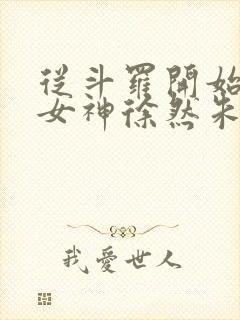 從斗羅開始
女神徐然朱
我愛世人